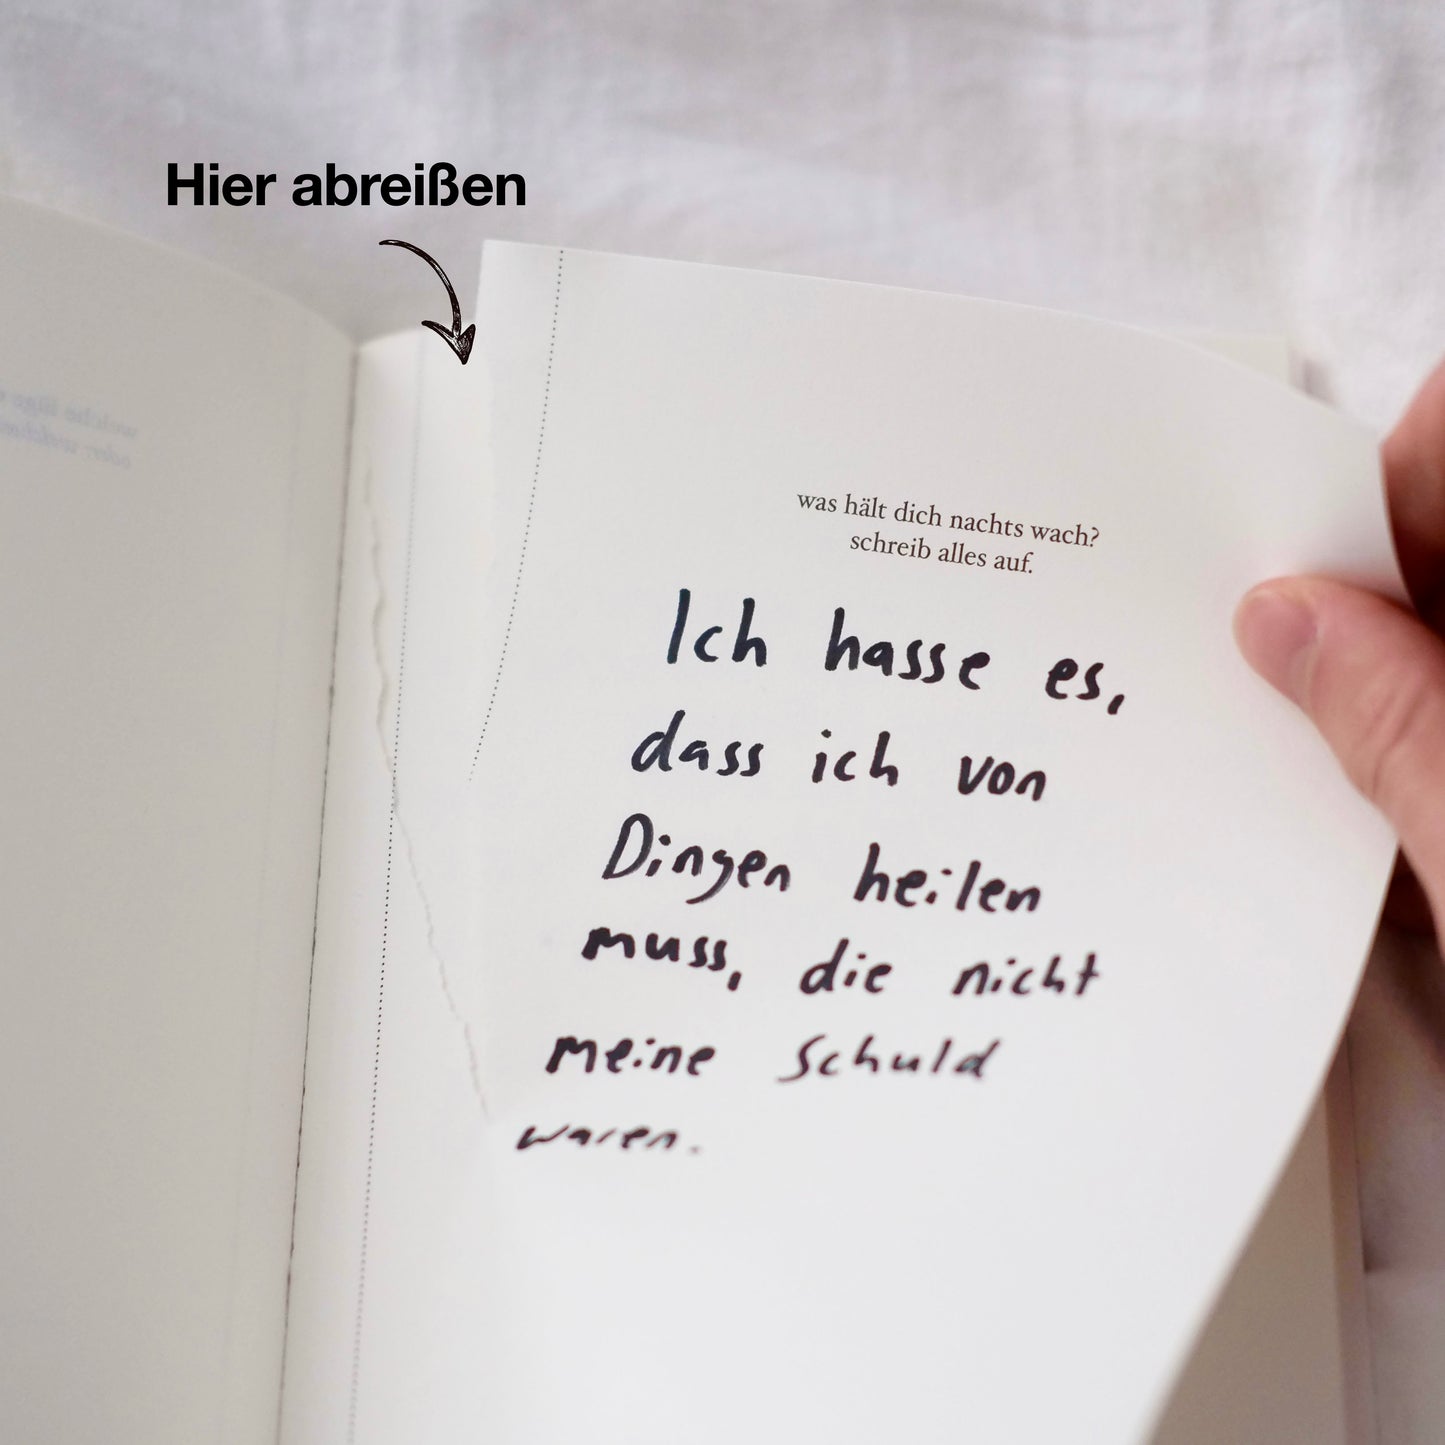 Hier abreißen
was hält dich nachts wach?
schreib alles auf.
Ich hasse es,
dass ich von
Dingen heilen
muss, die nicht
meine Schuld
waren.